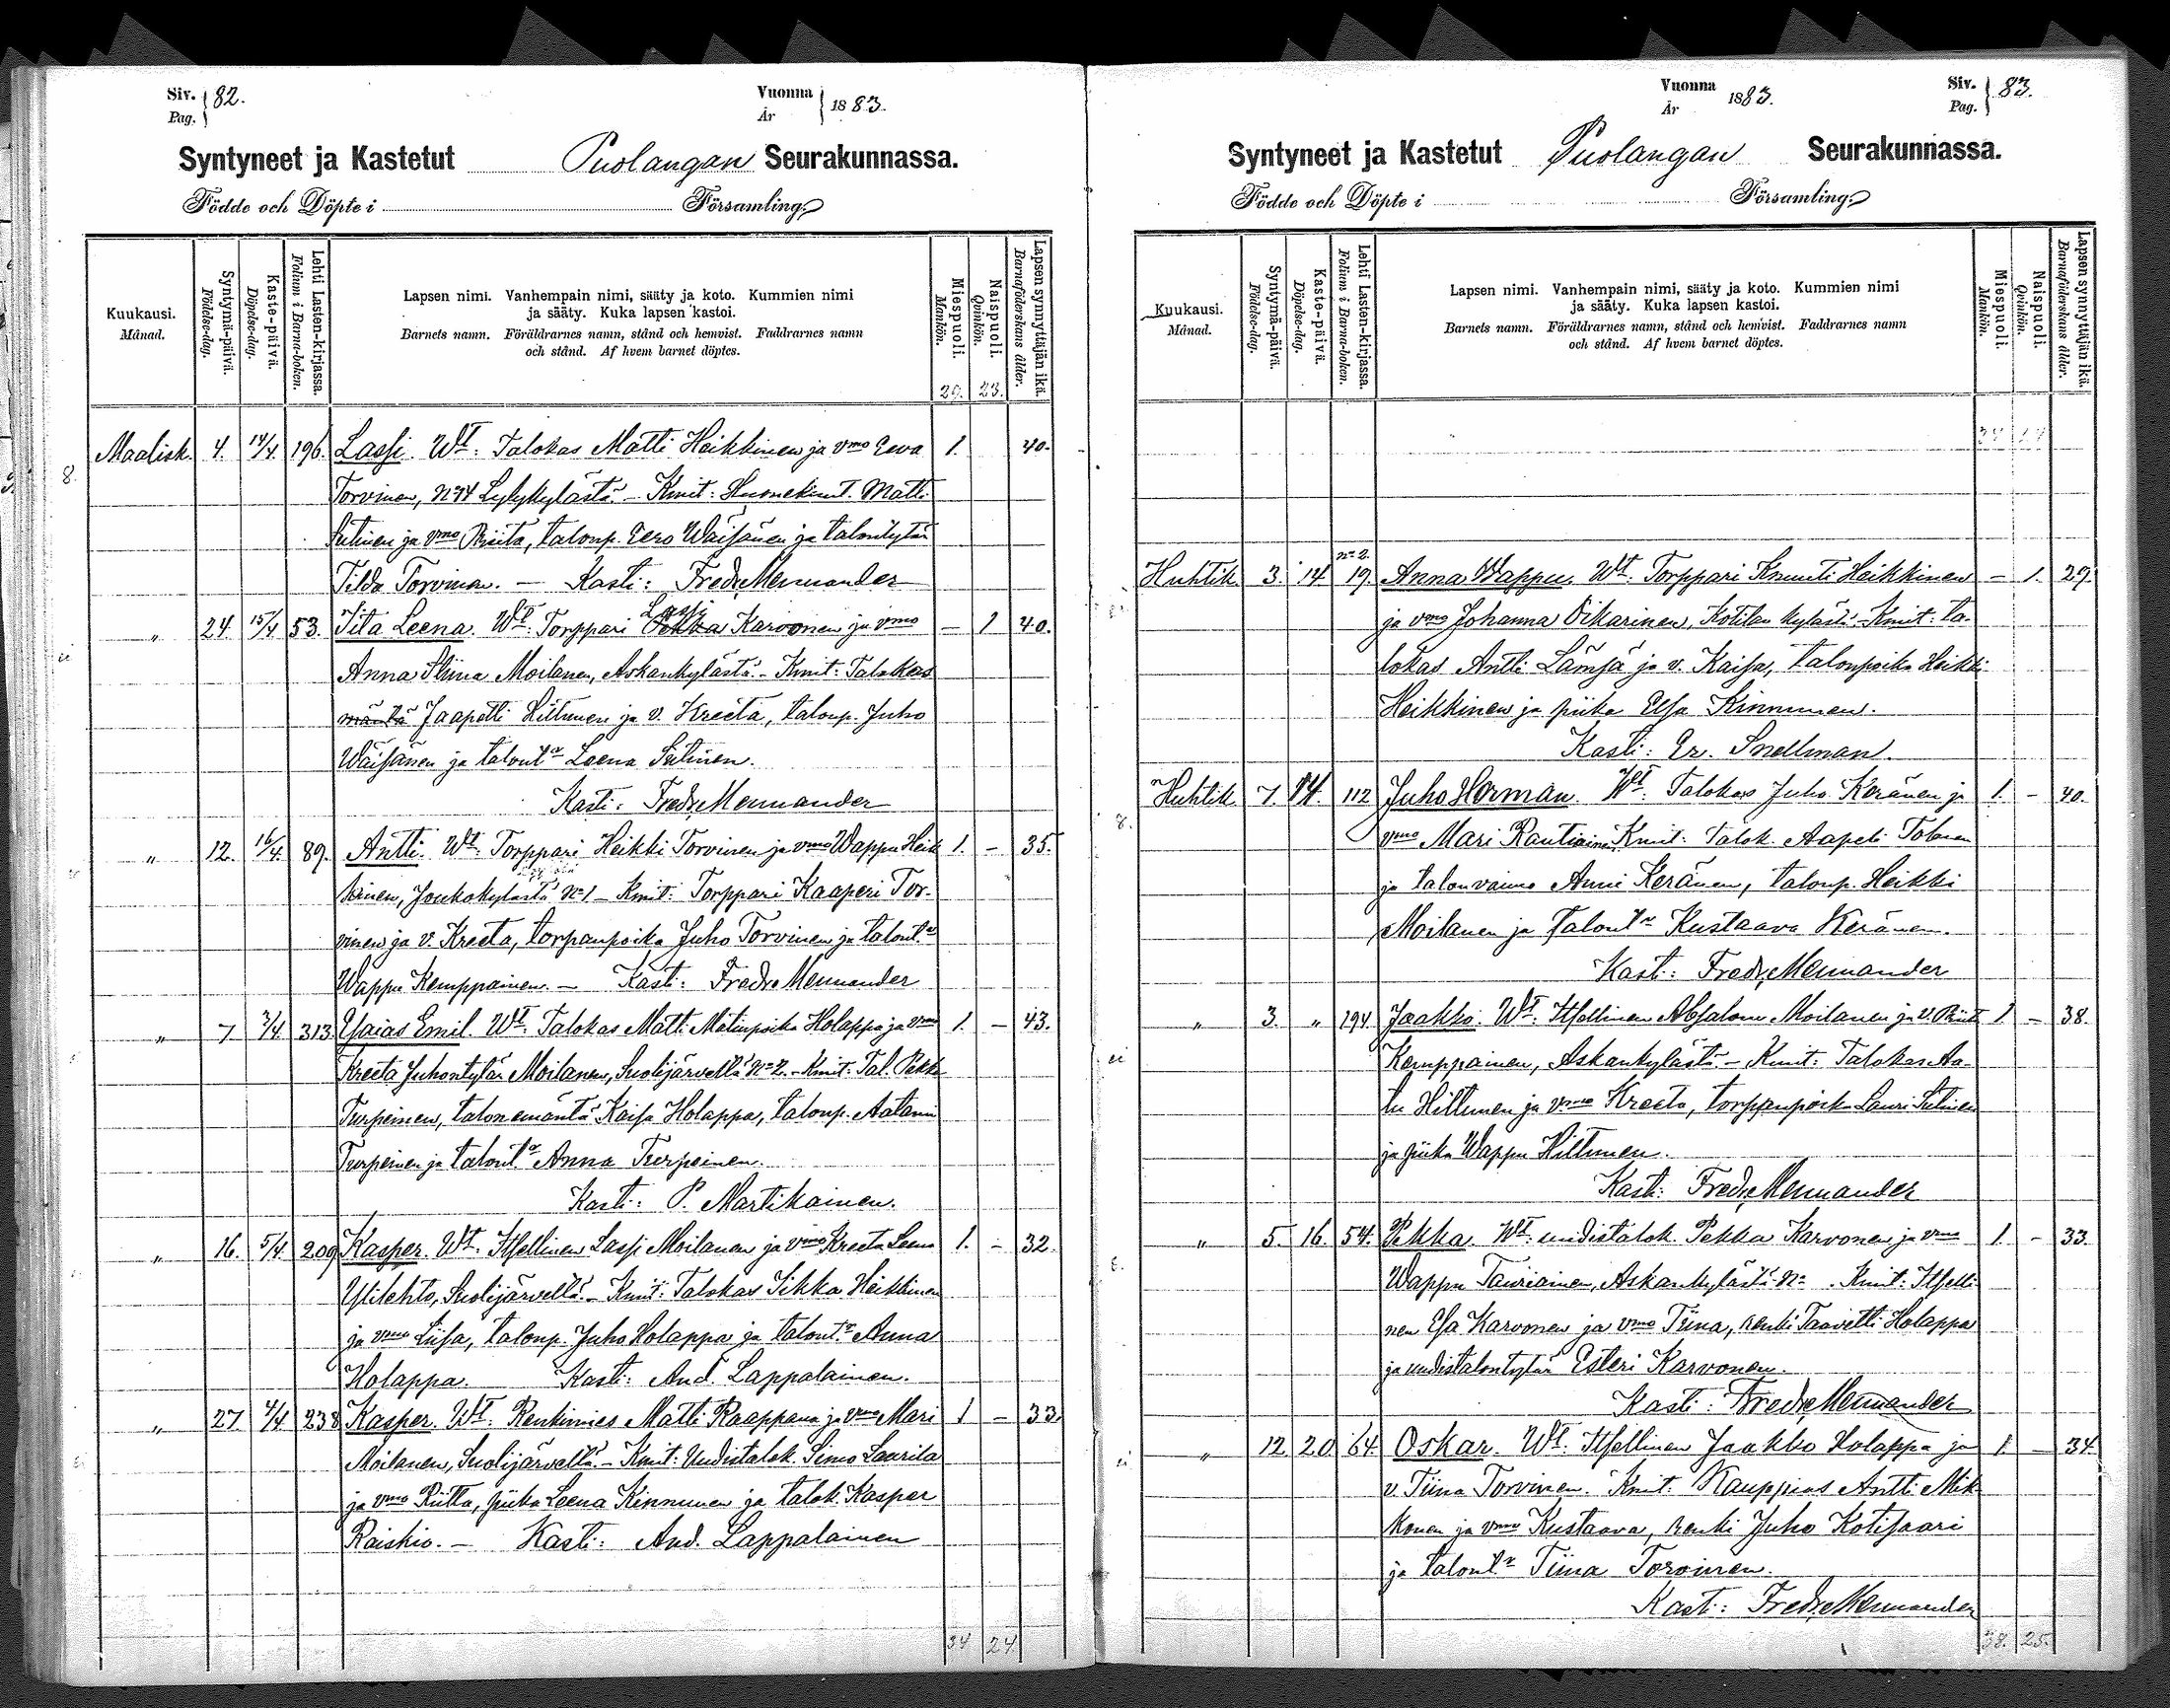 Siv. Pag. 82.
Vuonna År 1883.
Syntyneet ja Kastetut Puolangan Seurakunnassa.
Födde och Döpte i Församling.
Kuukausi. Månad.
Syntymä-päivä. Födelse-dag.
Kaste-päivä. Döpelse-dag.
Lehti Lasten-kirjassa. Folium i Barna-boken.
Lapsen nimi. Vanhempain nimi, sääty ja koto. Kummien nimi
ja sääty. Kuka lapsen kastoi.
Barnets namn. Föräldrarnes namn, stånd och hemvist. Faddrarnes namn
och stånd. Af hvem barnet döptes.
Miespuoli. Mankön.
Naispuoli. Qvinkön.
Lapsen synnyttäjän ikä. Barnaföderskans ålder.
29. 23.
Maalisk. 4. 14/4. 196. Lassi. Wt: Talokas Matti Heikkinen ja vmo Eewa 1. 40.
Torvinen, No 4 Lylykylästä. - Kmit: Huonekunt. Matti
Sutinen ja vmo Riita, taloup. Eero Wäisänen ja talontytär
Tilda Torvinen. — Kasti: Fredr. Mennander
" 24. 15/4 53. Iita Leena. Wt: Torppari Lassi Pekka Karvonen ja vmo — 1 40.
Anna Stiina Moilanen, Askankylästä. - Kmit: Talokas
mäntä Jaapetti Hiltunen ja v. Kreeta, taloup. Juho
Wäisänen ja talont:r Leena Sutinen.
Kasti: Fredr. Mennander
" 12. 16/4. 89. Antti. Wt: Torppari Heikki Torvinen ja vmo Wappu Heik 1. - 35.
kinen, Joukokylästä No 1 - Kmit: Torppari Kaaperi Tor-
vinen ja v. Kreeta, torpanpoika Juho Torvinen ja talont:r
Wappu Kemppainen. — Kasti: Fredr. Mennander
" 7. 3/4. 313. Esaias Emil. Wt: Talokas Matti Matinpoika Holappa ja vmo 1. - 43.
Kreeta Juhontytär Moilanen, Suolijärvellä No 2. - Kmit: Tal. Pekka
Turpeinen, talonemäntä Kaisa Holappa, taloup. Aatami
Turpeinen ja talont:r Anna Turpeinen.
Kasti: P. Martikainen.
" 16. 5/4. 209 Kasper. Wt: Itsellinen Lassi Moilanen ja vmo Kreeta Leena 1. - 32.
Ylilehto, Suolijärvellä. - Kmit: Talokas Sikka Heikkinen
ja vmo Liisa, taloup. Juho Holappa ja talont:r Anna
Holappa. Kasti: And. Lappalainen.
" 27. 4/4 238 Kasper. Wt: Renkimies Matti Raappana ja vmo Mari 1 - 33.
Moilanen, Suolijärvellä. - Kmit: Uudistalok. Simo Laurila
ja vmo Riitta, piika Leena Kinnunen ja talok. Kasper
Raiskio. — Kasti: And. Lappalainen
34 24
Vuonna År 1883.
Siv. Pag. 83.
Syntyneet ja Kastetut Puolangan Seurakunnassa.
Födde och Döpte i Församling.
Kuukausi. Månad.
Syntymä-päivä. Födelse-dag.
Kaste-päivä. Döpelse-dag.
Lehti Lasten-kirjassa. Folium i Barna-boken.
Lapsen nimi. Vanhempain nimi, sääty ja koto. Kummien nimi
ja sääty. Kuka lapsen kastoi.
Barnets namn. Föräldrarnes namn, stånd och hemvist. Faddrarnes namn
och stånd. Af hvem barnet döptes.
Miespuoli. Mankön.
Naispuoli. Qvinkön.
Lapsen synnyttäjän ikä. Barnaföderskans ålder.
34 24
Huhtik. 3. 14 No 2. 19. Anna Wappu. Wt: Torppari Knuuti Heikkinen - 1. 29.
ja vmo Johanna Oikarinen, Kotilan kylästä. - Kmit: ta-
lokas Antti Lämsä ja v. Kaisa, talonpoika Heikki
Heikkinen ja piika Elsa Kinnunen.
Kasti: Er. Snellman.
Huhtik. 7. 14. 112 Juho Herman. Wt: Talokas Juho Keränen ja 1. - 40.
vmo Mari Rautiainen Kmit: Talok. Aapeli Tolonen
ja talonvaimo Anni Keränen, taloup. Heikki
Moilanen ja talont:r Kustaava Keränen.
Kasti: Fredr. Mennander
" 3. " 194. Jaakko. Wt: Itsellinen Absalom Moilanen ja v. Riita 1 - 38.
Kemppainen, Askankylästä. - Kmit: Talokas Aa-
tu Hiltunen ja vmo Kreeta, torpanpoika Lauri Sutinen
ja piika Wappu Hiltunen.
Kasti: Fredr. Mennander
" 5. 16. 54. Pekka. Wt: uudistalok. Pekka Karvonen ja vmo 1 - 33.
Wappu Tauriainen, Askankylästä No . Kmit: Itselli-
nen Esa Karvonen ja vmo Tiina, renki Taavetti Holappa
ja uudistalontytär Esteri Karvonen.
Kasti: Fredr. Mennander
" 12 20 64. Oskar. Wt: Itsellinen Jaakko Holappa ja 1 - 34.
v. Tiina Torvinen. Kmit: Kauppias Antti Mik-
konen ja vmo Kustaava, renki Juho Kotisaari
ja talont:r Tiina Torvinen.
Kasti: Fredr. Mennander
38. 25.